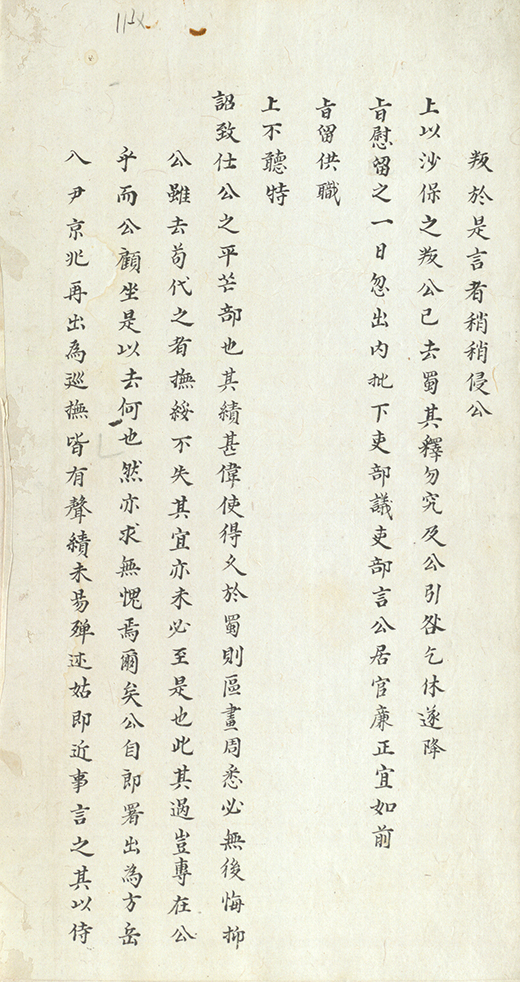 叛於是言者稍稍侵公
上以沙保之叛公已去蜀其釋勿究及公引咎乞休遂降
旨慰留之一日忽出内批下吏部議吏部言公居官廉正宜如前
旨留供職
上不聽特
詔致仕公之平芒部也其績甚偉使得久於蜀則區畫周悉必無後悔抑
公雖去苟代之者撫綏不失其宜亦未必至是也此其過豈專在公
乎而公顧坐是以去何也然亦求無愧焉爾矣公自郎署出為方岳
入尹京兆再出為巡撫皆有聲績未易殫述姑即近事言之其以侍